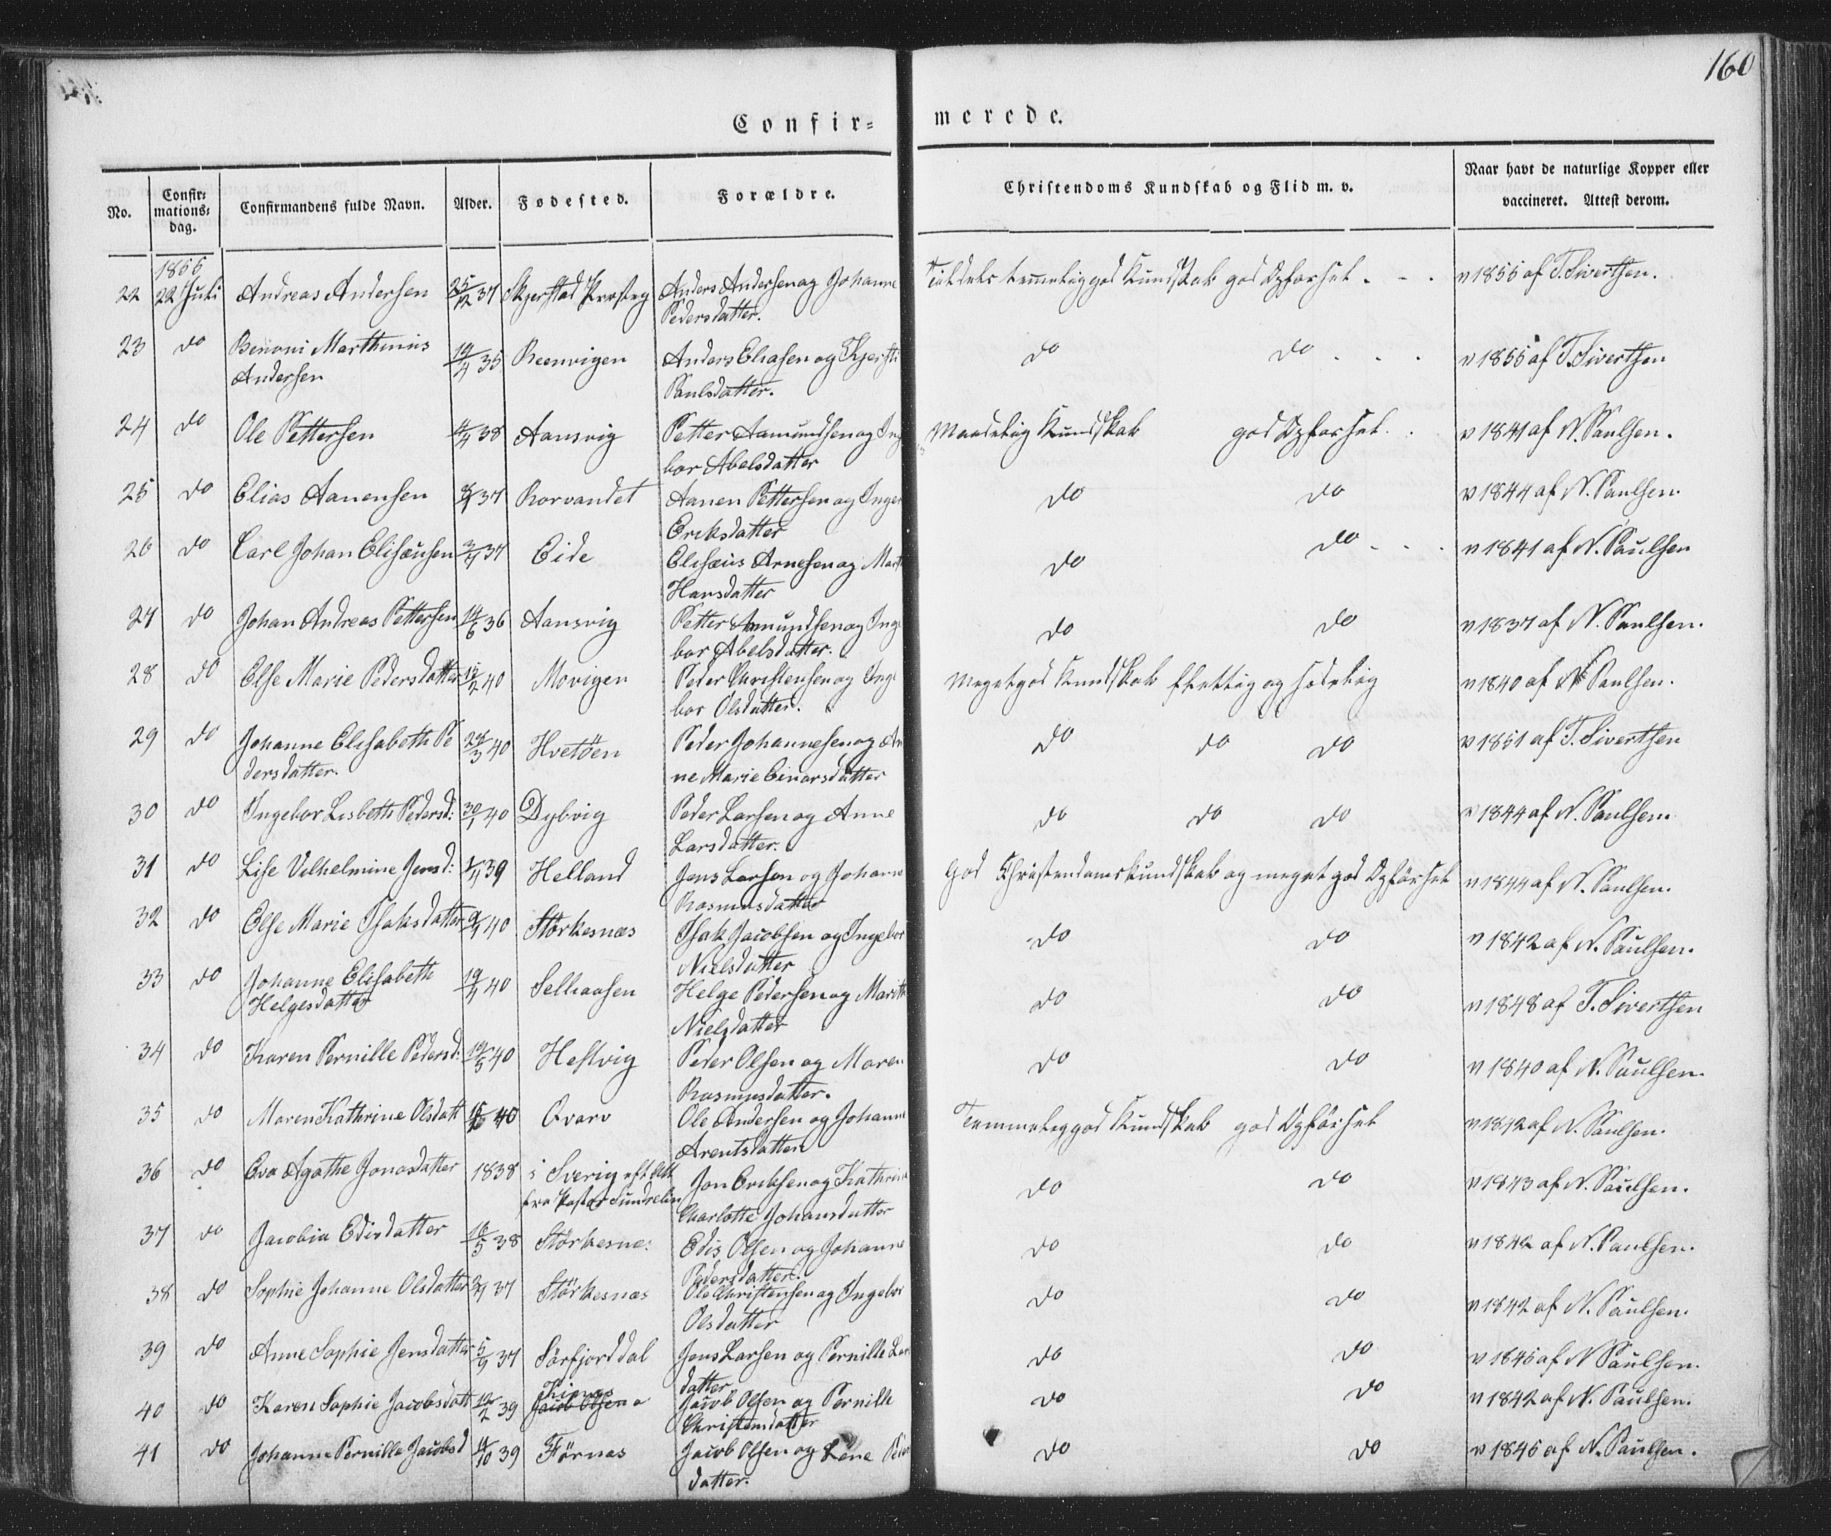 160
Confir= merede.
No. Confir=mations=dag. Confirmandens fulde Navn. Alder. Fødested. Forældre. Christendoms Kundskab og Flid m. v. Naar havt de naturlige Kopper eller vaccineret. Attest derom.
22 1855 22 Juli Andreas Andersen 25/12 37 Skjerstad Præstegj Anders Andersen og Johanne Pedersdatter. Tildels temmelig god Kundskab god Opførsel - - v 1855 af T. Sivertsen.
23 do Benoni Marthinus Andersen 19/4 35 Reenvigen Anders Eliasen og Kjersti Paulsdatter. do do - - - v 1855 af T. Sivertsen
24 do Ole Pettersen 4/4 38 Aansvig Petter Aamundsen og Ingebor Abelsdatter Maadelig Kundskab god Opførsel. v 1841 af N. Paulsen.
25 do Elias Aanensen 37 Rorvandet Aanen Pettersen og Inger Eriksdatter do do v 1844 af N. Paulsen.
26 do Carl Johan Elisæusen 37 Eide Elisæus Arnesen og Marit Hansdatter do do - - - v 1841 af N. Paulsen
27 do Johan Andreas Pettersen 14/6 36 Aansvig Petter Amundsen og Ingebor Abelsdatter. do do v 1837 af N. Paulsen.
28 do Else Marie Pedersdatter 15/2 40 Movigen Peder Christensen og Ingebor Olsdatter. Meget god Kundskab flittig og sædelig v 1840 af N. Paulsen.
29 do Johanne Elisabeth Pedersdatter. 28/3 40 Hvetøen Peder Johannesen og Anne Marie Einarsdatter do do do v 1851 af T. Sivertsen
30 do Ingebor Lisbeth Pedersd: 30/1 40 Dybvig Peder Larsen og Anne Larsdatter. do do do v 1844 af N. Paulsen.
31 do Lise Vilhelmine Jensd: 1/11 39 Helland Jens Larsen og Johanne Rasmusdatter God Christendomskundskab og meget god Opførsel v 1844 af N. Paulsen.
32 do Else Marie Isaksdatter 9/1 40 Størkesnæs Isak Jacobsen og Ingebor Nielsdatter do do v 1842 af N. Paulsen.
33 do Johanne Elisabeth Helgesdatter 19/4 40 Selhaasen Helge Pedersen og Marith Nielsdatter do do v 1848 af T. Sivertsen
34 do Karen Pernille Pedersd: 19/5 40 Hestvig Peder Olsen og Maren Rasmusdatter. do do v 1840 af N. Paulsen.
35 do Maren Kathrine Olsdatt 40 Qvarv Ole Andersen og Johanne Arentsdatter Temmelig god Kundskab god Opførsel v 1842 af N. Paulsen.
36 do Eva Agathe Jonasdatter 1838 i Sverig eft Att. fra Pastor Sundelin Jon Eriksen og Kathrine Charlotte Johansdatter do do v 1843 af N. Paulsen.
37 do Jacobia Edisdatter 16/5 38 Størkesnes: Edis Olsen og Johanne Pedersdatter. do do v 1842 af N. Paulsen.
38 do Sophie Johanne Olsdatter 37 Størkesnæs Ole Christensen og Ingebor Olsdatter do do v 1842 af N. Paulsen.
39 do Anne Sophie Jensdatter 5/9 37 Sørfjorddal Jens Larsen og Pernille Larsdatter do do v 1845 af N Paulsen.
40 do Karen Sophie Jacobsdatt 12/2 39 Jacob Olsen o Jacob Olsen og Pernille Christensdatter do do v 1842 af N. Paulsen.
41 do Johanne Pernille Jacobsd 14/10 39 Førnæs Jacob Olsen og Lene Peders datter. do do v 1845 af N. Paulsen.